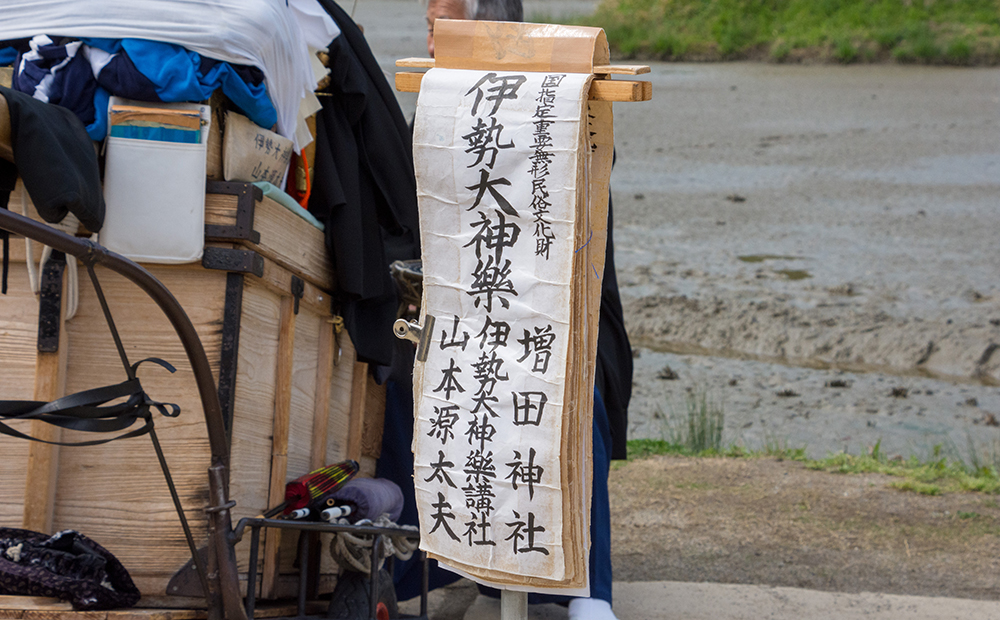 国指定重要無形民俗文化財
伊勢大神樂
増田神社
伊勢大神樂講社
山本源太夫
伊勢大
山本源